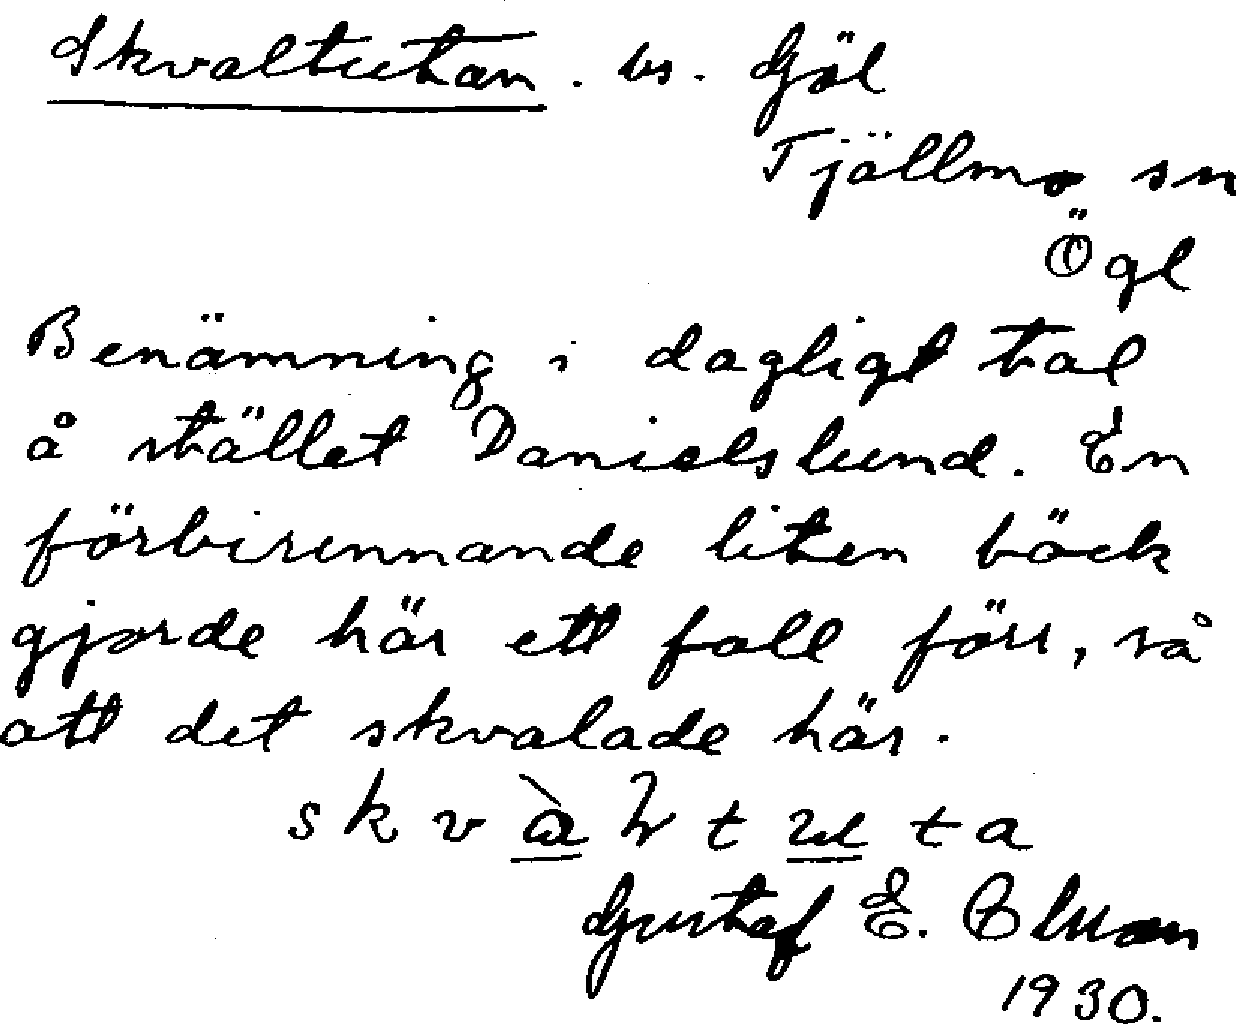 Skvaltutan. vs. Gjöl
Tjällmo sn
Ögl
Benämning i dagligt tal
å stället Danielslund. En
förbirinnande liten bäck
gjorde här ett fall förr, så
att det skvalade här.
s k v a t u t a
Gustaf E.
1930.